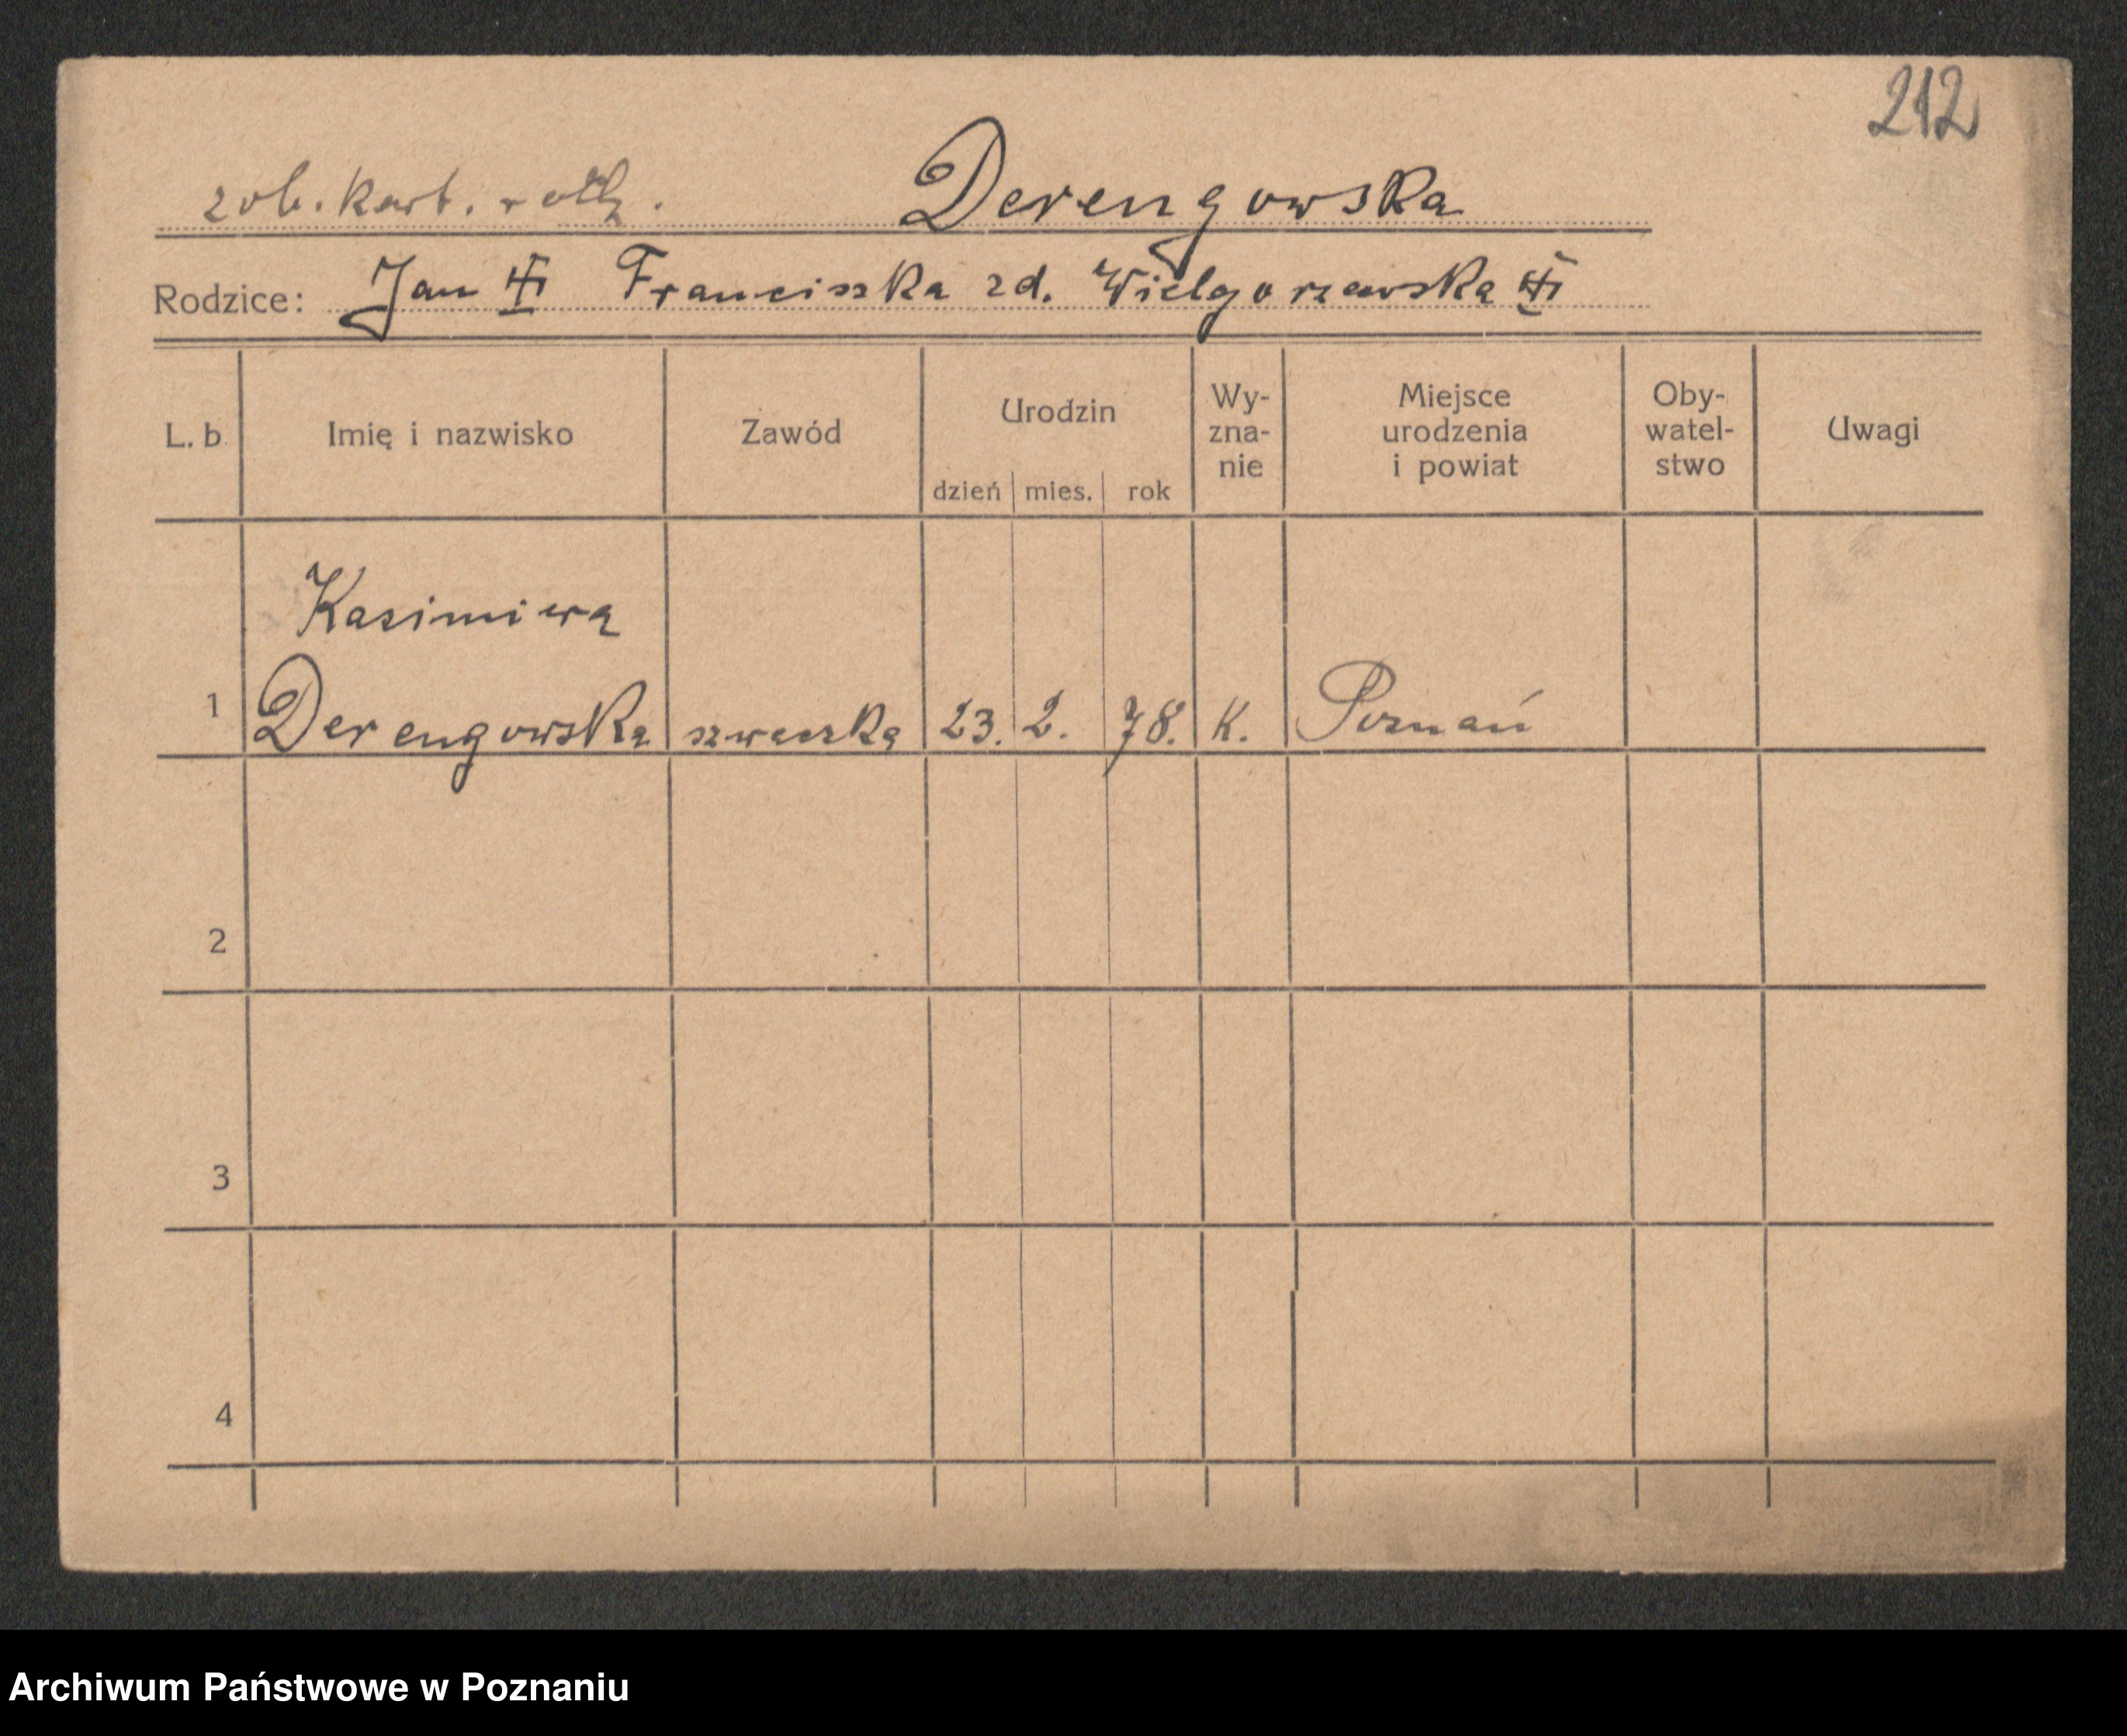 212
zob. kart. Derengowska
Rodzice: Jan Franciszka zd. Wielgorzewska
L. b Imię i nazwisko Zawód Urodzin dzień mies. rok Wy-zna-nie Miejsce urodzenia i powiat Oby-watel-stwo Uwagi
Kasimira
1 Derengowska szwaczka 23. 2. 78. K. Poznań
2
3
4
Archiwum Państwowe w Poznaniu